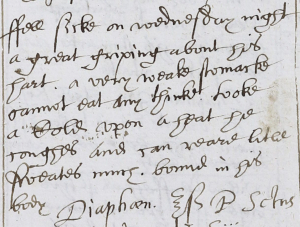 ffell sicke on wednesday night
a great griping about his
hart. a very weake stomacke
cannot eat any thinke. tooke
a Cold upon a heat he
coughes and can reard litle
sweates much. bound in his
body Diaphœn. ℥ß P Scīns